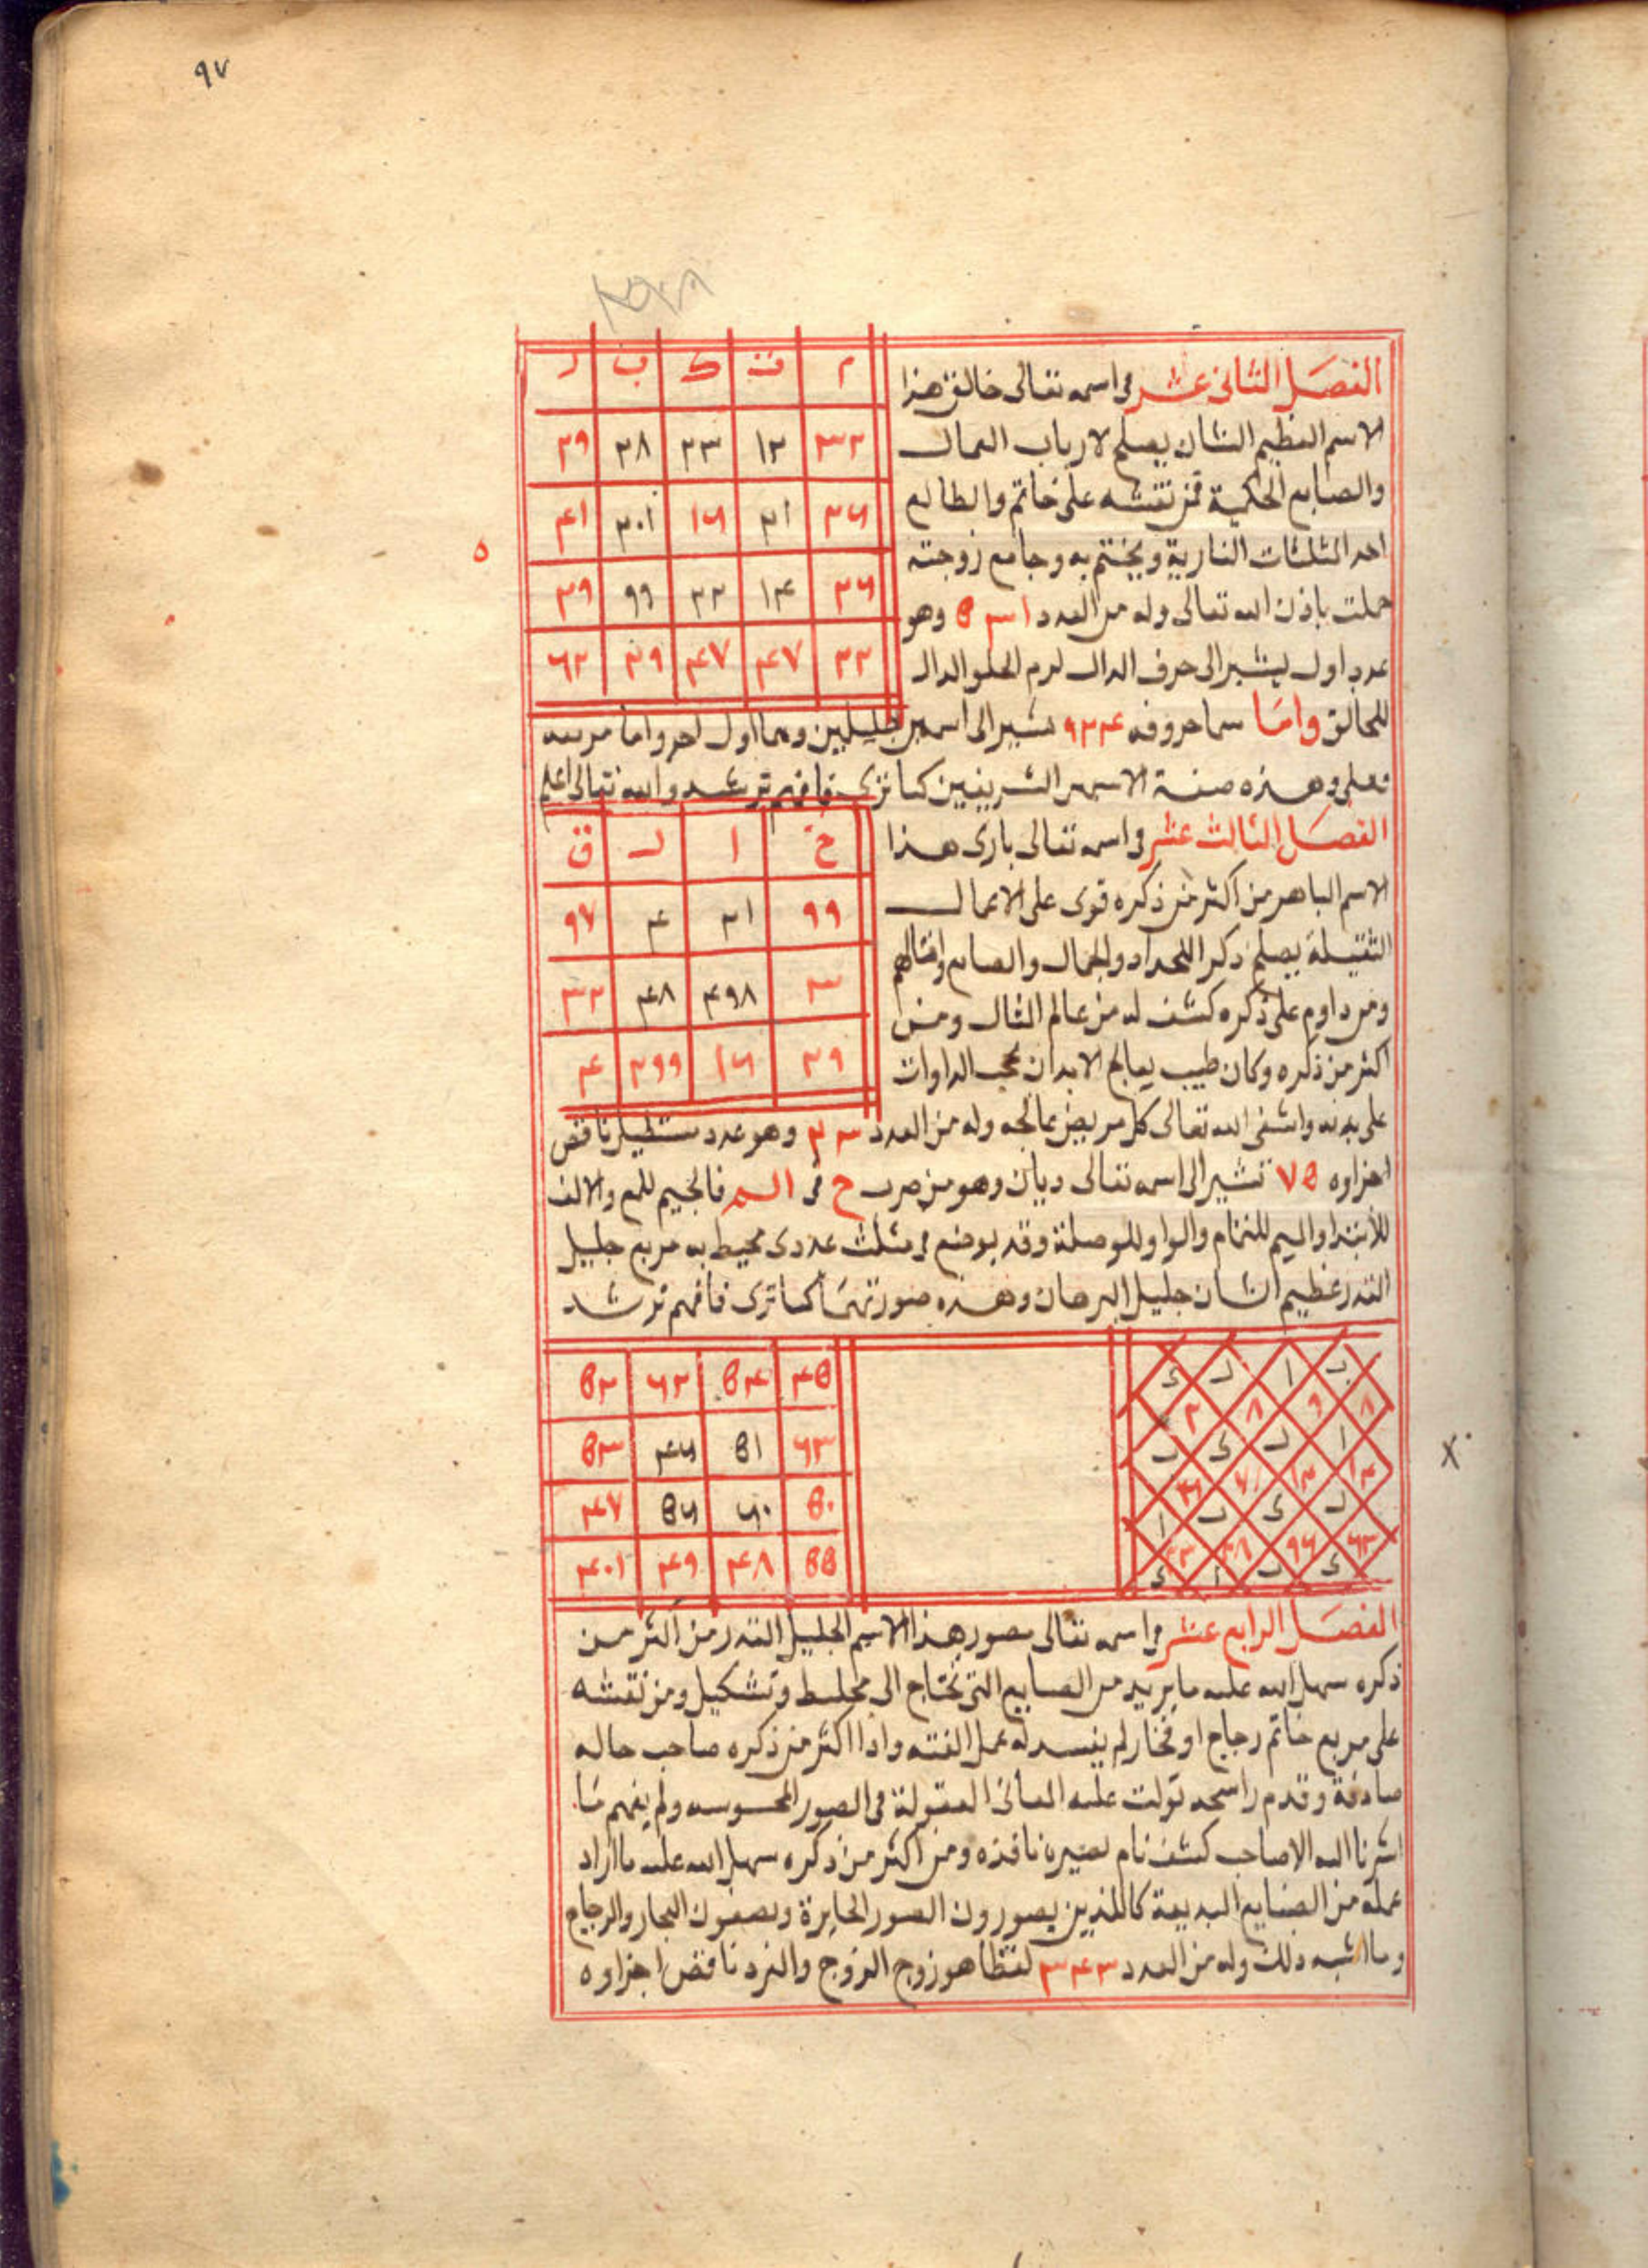 ٩٧
م ت ك ب ر
٣٢ ١٢ ٢٣ ٣٨ ٢٩
٢٦ ٢١ ١٦ ٢٠١ ٤١
٢٦ ١٤ ٢٢ ٩٩ ٣٩
٢٢ ٤٧ ٤٧ ٣٩ ٦٢
الفصل الثانى عشر فى اسمه تعالى خالق هذا
الاسم العظيم الشان يصلح لارباب
والصنايع الحكمية فمن نقشه على خاتم والطالع
احد المثلثات النارية ويختم به وجامع زوجته
حملت باذن الله تعالى وله من العدد وهو
عدد اول يشير الى حرف الدال
للخالق واما حروفه ٩٢٤ تشير الى اسمين جليلين وهما اول اخر واما مربعه
وهذه صفة الاسمين الشريفين كما ترى فافهم ترشد والله تعالى اعلم
خ ا ل ق
٩٩ ٣١ ٤ ٩٧
٣ ٤٩٨ ٤٨ ٣٢
٢٩ ١٦ ٢٩٩ ٤
الفصل الثالث عشر فى اسمه تعالى بارى هذا
الاسم الباهر من اكثر من ذكره قوى على الاعمال
الثقيلة يصلح ذكر للحداد والجمال والصايع وامثالهم
ومن داوم على ذكره كشف له من عالم المثال ومن
اكثر من ذكره وكان طبيب يعالج الابدان
على يديه واشفى الله تعالى كل مريض عالجه وله من العدد وهو عدد مستطيل ناقص
اجزاوه ٧٥ تشير الى اسمه تعالى ديان وهو من ضرب ح فى فالجيم للجمع والالف
للابتدا والميم للتمام والواو للوصلة وقد يوضع فى مثلث عددى محيط به مربع جليل
القدر عظيم الشان جليل البرهان وهذه صورتهما كما ترى فافهم ترشد
ب ا ر ى
٨ ٩ ٨ ٢
ا ر ى ب
ر ى ب ا
ى ب ا ى
٤٥ ٥٤ ٦٢ ٥٢
٦٣ ٥١ ٤٦ ٥٣
٥٠ ٦٠ ٥٦ ٤٧
٥٥ ٤٨ ٤٩ ٤٠١
الفصل الرابع عشر فى اسمه تعالى مصور هذا الاسم الجليل القدر من اكثر من
ذكره سهل الله عليه ما يريد من الصنايع التى تحتاج الى تخليط وتشكيل ومن نقشه
على مربع خاتم زجاج او فخار لم يفسد له عمل البته واذا اكثر من ذكره صاحب حاله
صادقة وقدم راسخه تولت عليه المعانى المعقولة فى الصور المحسوسه ولم يفهم ما
اشرنا اليه الا صاحب كشف تام بصيرة نافذه ومن اكثر من ذكره سهل الله عليه ما اراد
عمله من الصنايع البديعة كالذين يصورون الصور الحايزة والزجاج
وما اشبه ذلك وله من العدد ٣٤٣ لفظا هو زوج الزوج والفرد ناقص اجزاوه